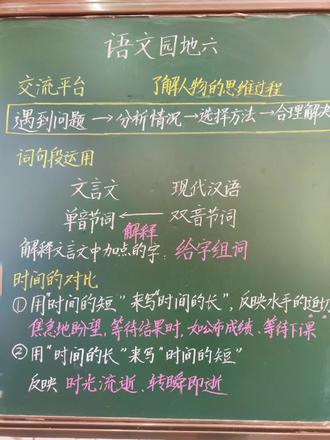 语文园地六
交流平台 了解人物的思维过程
遇到问题→分析情况→选择方法→合理解决
词句段运用
文言文 现代汉语
单音节词 ← 双音节词
解释
解释文言文中加点的字：给字组词
时间的对比
①用"时间的短"来写"时间的长"，反映水手的迫切
焦急地盼望，等待结果时，如公布成绩、等待下课
②用"时间的长"来写"时间的短"
反映 时光流逝、转瞬即逝